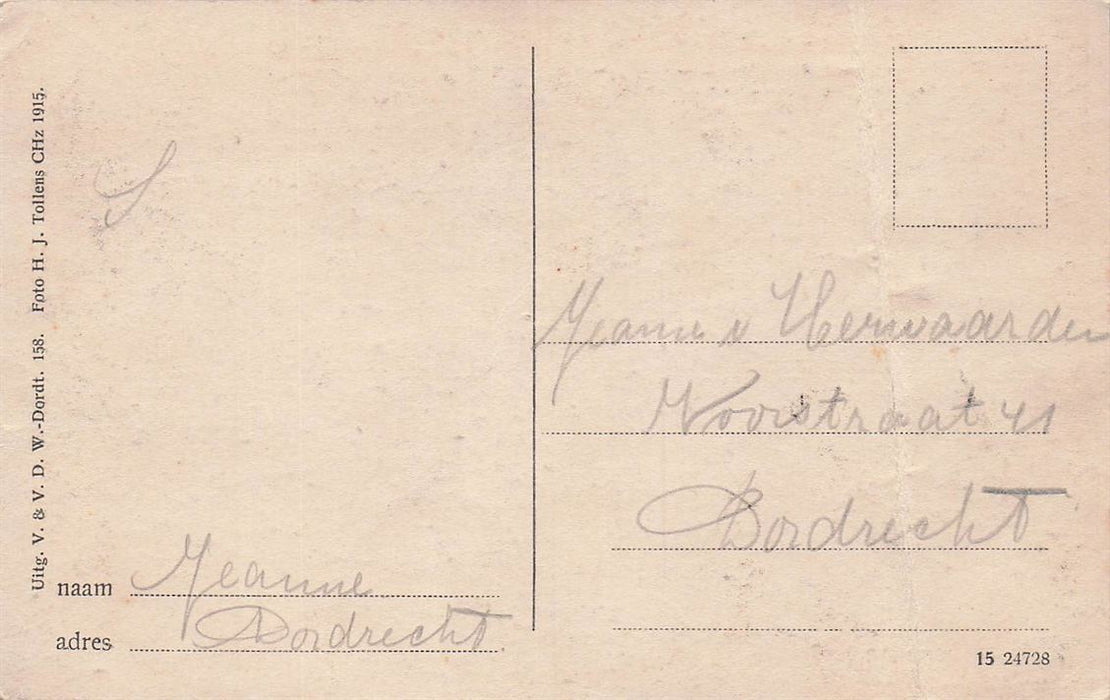 Uitg. V. & V. D. W.-Dordt. 158. Foto H. J. Tollens CHz 1915.
S
naam Jeanne
adres Dordrecht
Jeanne v Herwaarden
Voorstraat 41
Dordrecht
15 24728